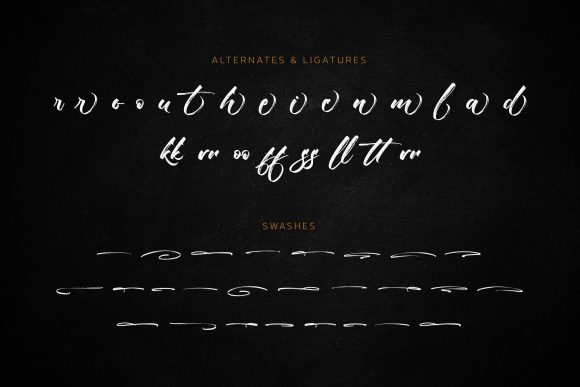 ALTERNATES & LIGATURES
r r o o u t h e i c n m f a d
kk rr oo ff ss ll tt rr
SWASHES